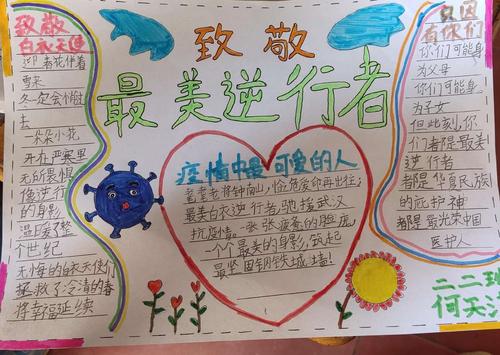 致敬
最美逆行者
致敬
白衣天使
迎着花伴着
雪来
冬一定会悄悄过
去
一朵朵小花
开在严寒里
无所畏惧
像逆行
的身影
温暖了整
个世纪
无悔的白衣天使们
拯救了冷清的春
将幸福延续
疫情中最可爱的人
耄耋老将钟南山,临危受命再出征;
最美白衣逆行者,驰援武汉
抗疫情。一张张疲惫的脸庞,
一个个最美的身影,筑起
最坚固钢铁城墙!
只因
有你们
你们可能身
为父母
你们可能身
为子女
但此刻,你
们者是最美
逆行者
都是华夏民族
的庇护神
都是最光荣中国
医护人
二二班
何天